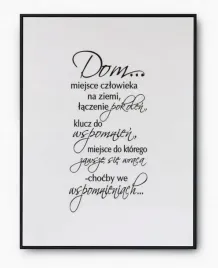 Dom...
miejsce człowieka
na ziemi,
łączenie pokoleń,
klucz do
wspomnień,
miejsce do którego
zawsze się wraca
-choćby we
wspomnieniach...